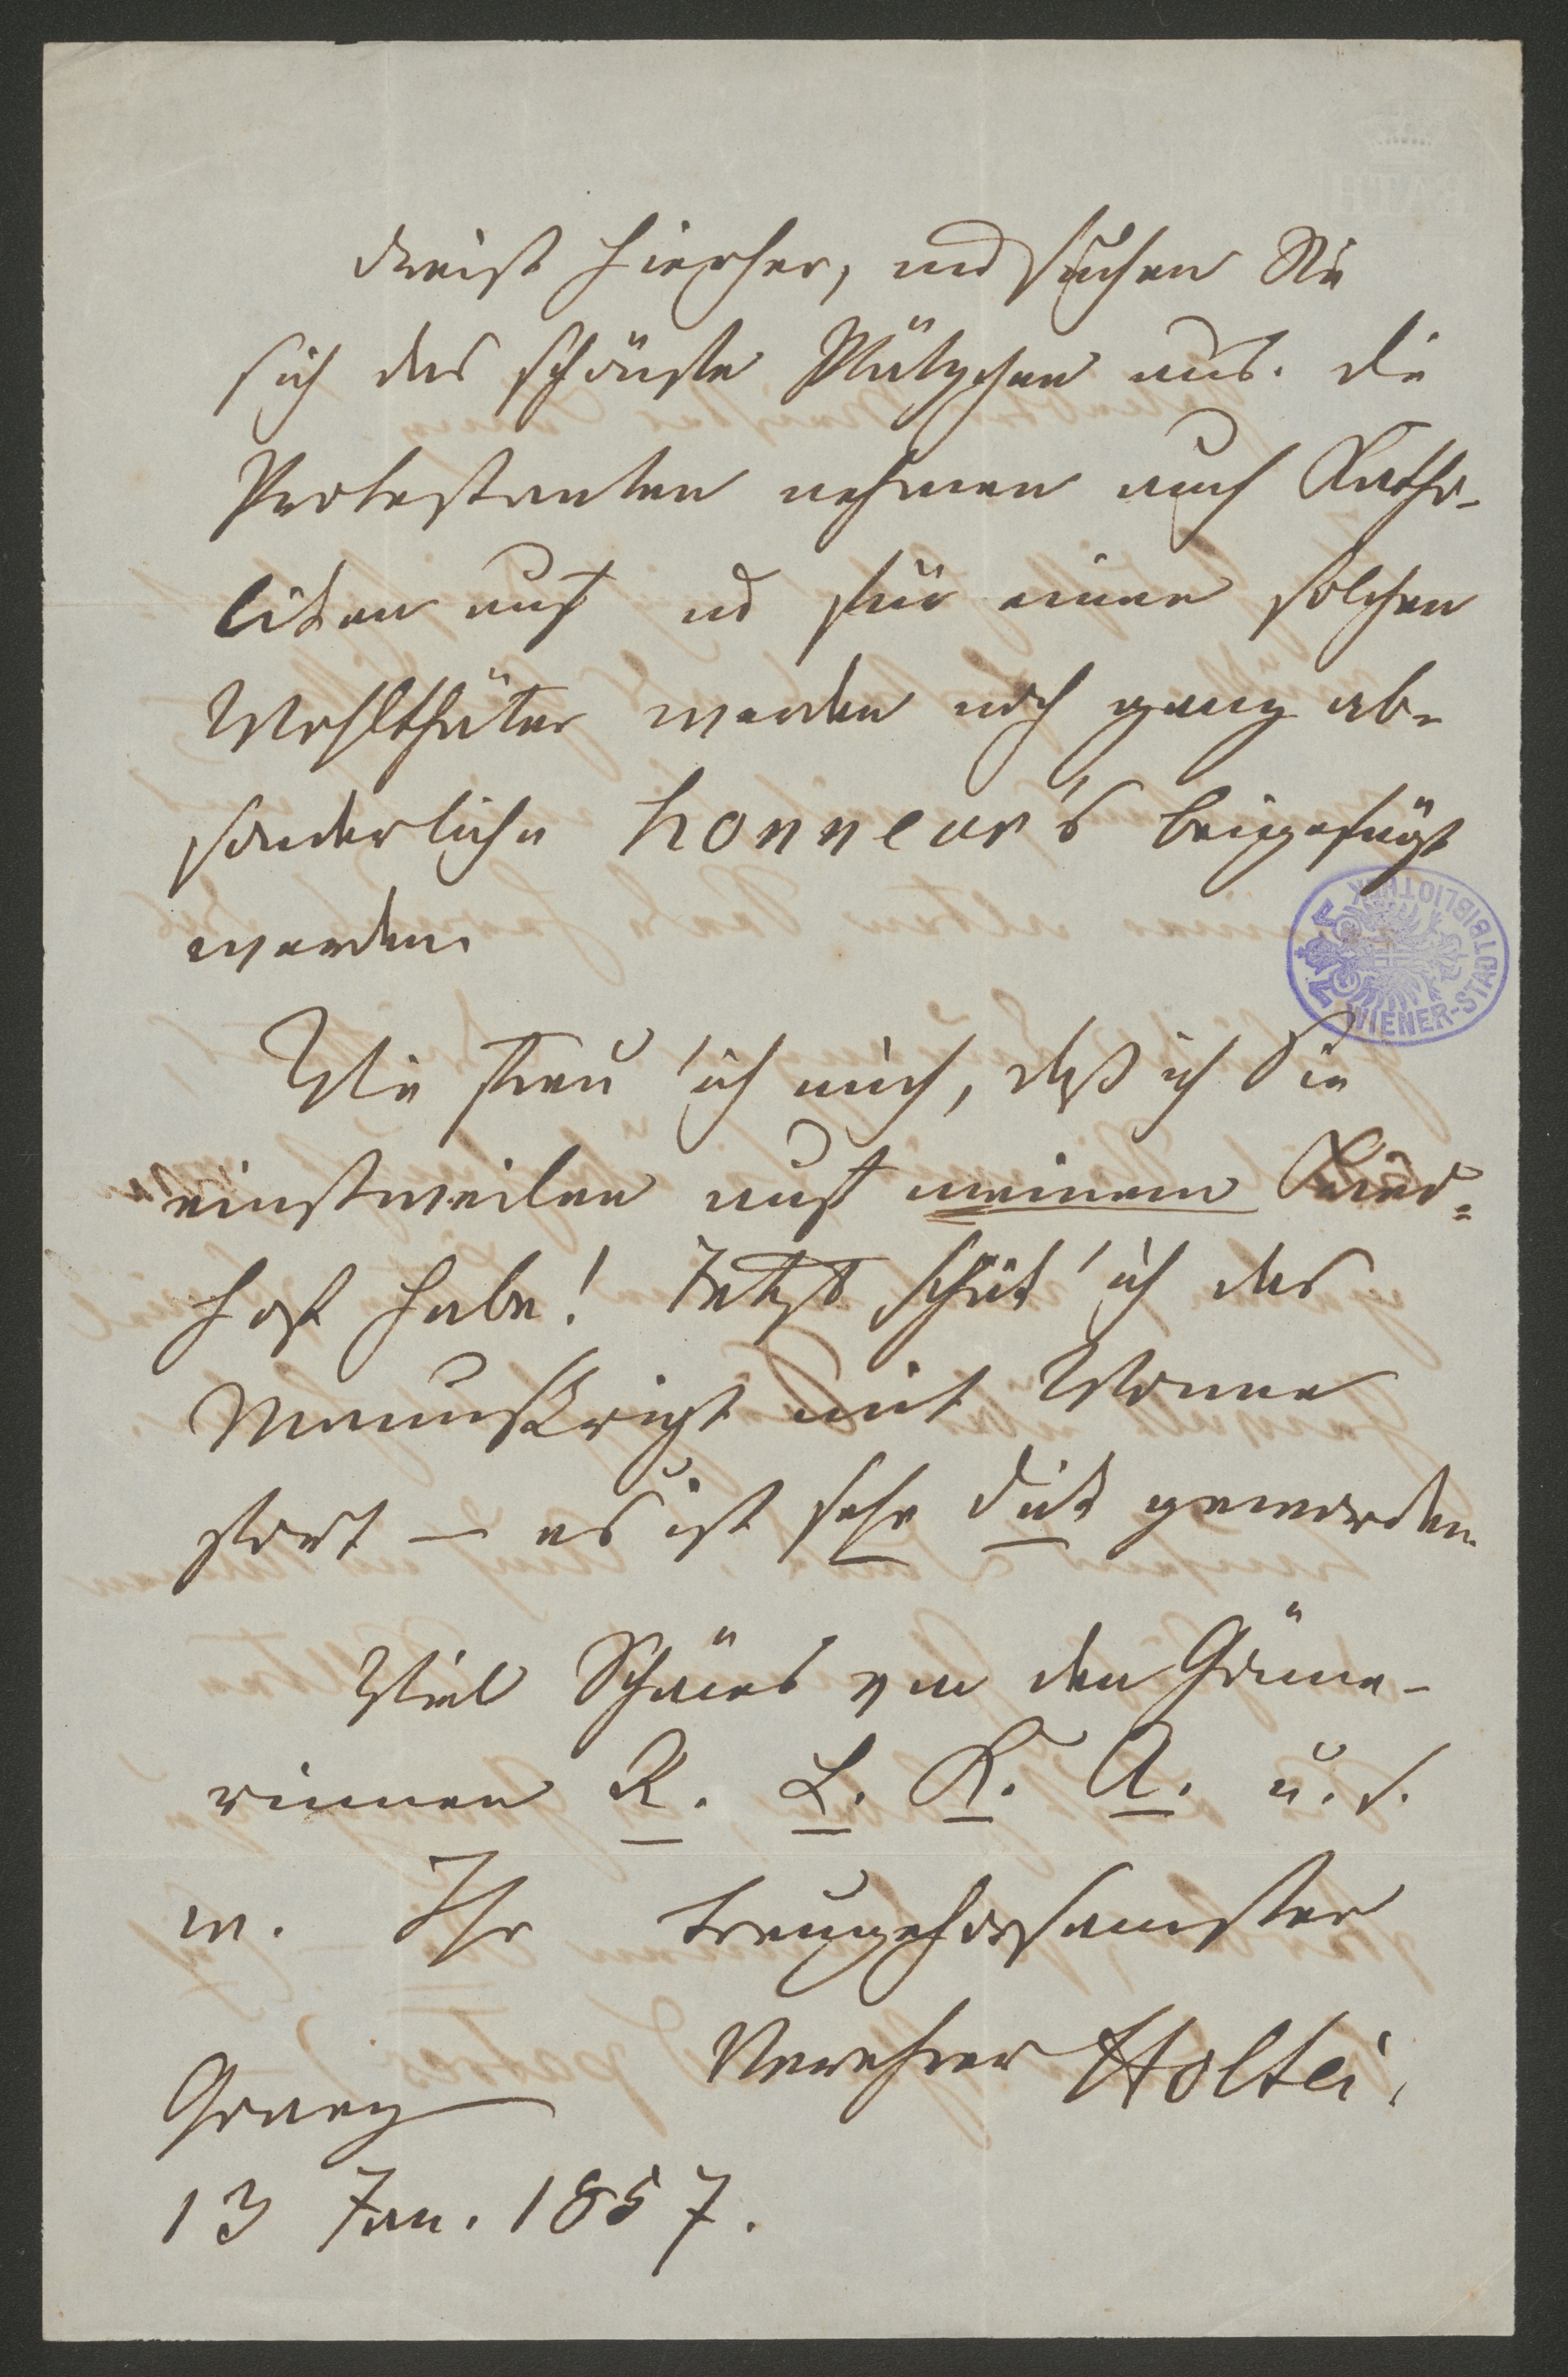 dreist hierher, und suchen Sie
sich das schönste Plätzchen aus. Die
Protestanten nehmen auch Katho-
liken auf und für einen solchen
Wohlthäter werden noch ganz ab-
sonderliche honneur's beigefügt
werden.
Wie freu' ich mich, daß ich Sie
einstweilen auf meinem Fried-
hof habe! Jetzt schick' ich das
Manuskript mit Wonne
fort – es ist sehr dick geworden.
Viel Schönes von den Gönne-
rinnen R. L. K. A. u. s.
w. Ihr treugehorsamster
Verehrer Holtei.
Graez
13 Jan. 1857.
WIENER-STADTBIBLIOTHEK